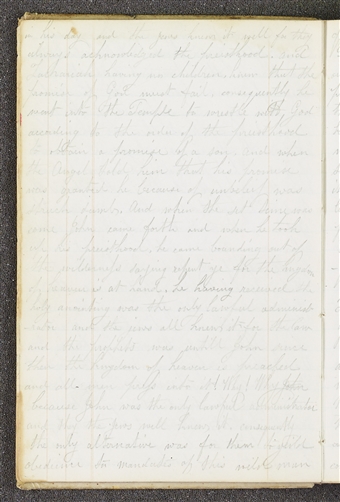 in his day and the jews knew it well for they
always acknowledged the priesthood. and
Zachariah having no children knew that the
promise of God must fail, consequently he
went into the Temple to wrestle with God
according to the order of the priesthood
to obtain a promise of a son, and when
the Angel told him that his promise
was granted he because of unbelief was
struck dumb. And when the set time was
come John came forth and when he took
up his priesthood, he came bounding out of
the wilderness saying repent ye for the kingdom
of heaven is at hand, he having received the
holy anointing was the only lawful administrator
and the jews all knew it for the law
and the prophets was until John since
then the kingdom of heaven is preached
and all men press into it! Why! Why John
because John was the only lawful administrator
and the jews well knew it. consequently
the only alternative was for them to yield
obedience to mandates of this wild man